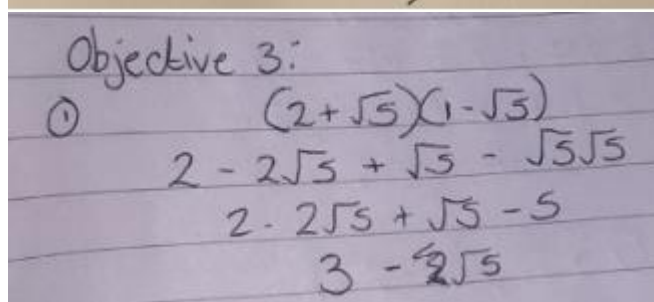 Objective 3:
① (2+√5)(1-√5)
2 - 2√5 + √5 - √5√5
2 - 2√5 + √5 - 5
3 - 2√5